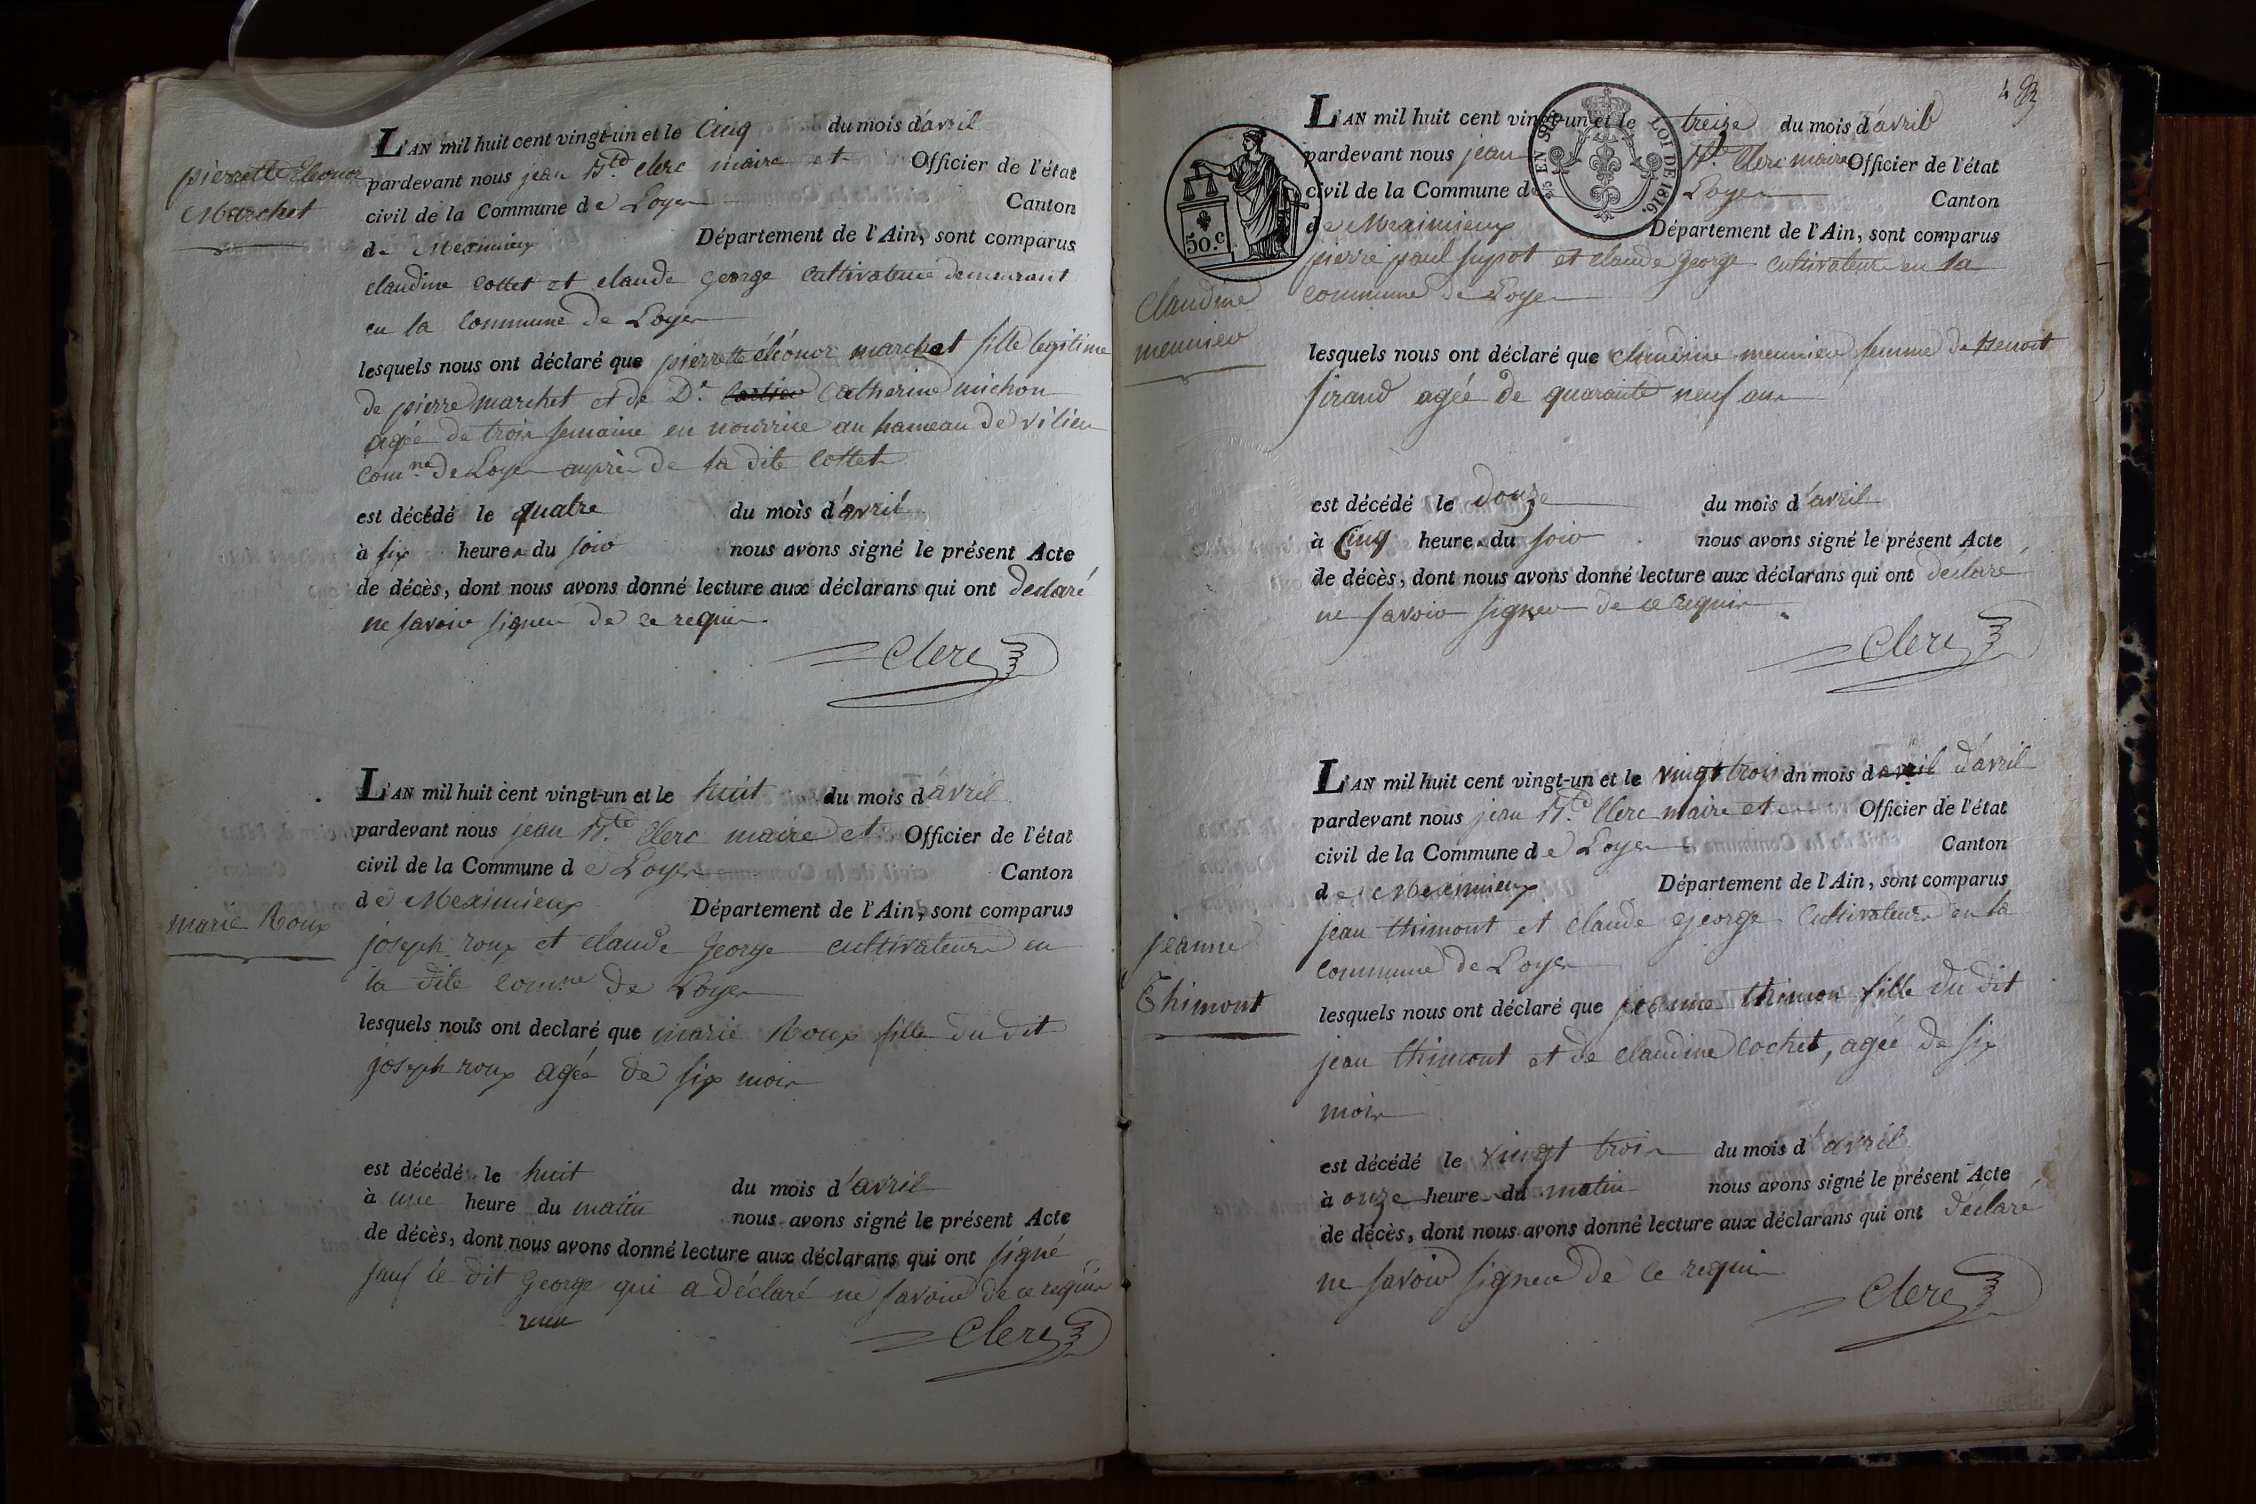 pierrette Eléonor
Marchet
L'AN mil huit cent vingt-un et le Cinq du mois d'avril
pardevant nous jean Bte. Clerc maire et Officier de l'état
civil de la Commune de Loyes Canton
de Meximieux Département de l'Ain, sont comparus
claudine Cottet et claude George cultivateurs demeurant
en la Commune de Loyes
lesquels nous ont déclaré que pierrette éléonor marchet fille légitime
de pierre marchet et de De. Catherine michon
agée de trois semaine en nourrice au hameau de vilieu
Comne. de Loyes auprès de la dite Cottet
est décédé le quatre du mois d'avril
à six heures du soir nous avons signé le présent Acte
de décès, dont nous avons donné lecture aux déclarans qui ont déclaré
ne savoir signer de ce requis.
Clerc
marie Roux
L'AN mil huit cent vingt-un et le huit du mois d'avril
pardevant nous jean Bte. Clerc maire et Officier de l'état
civil de la Commune de Loyes Canton
de Meximieux Département de l'Ain, sont comparus
joseph roux et claude George cultivateurs en
la dite Comne de Loyes
lesquels nous ont déclaré que marie Roux fille du dit
joseph roux agée de six mois
est décédé le huit du mois d'avril
à une heure du matin nous avons signé le présent Acte
de décès, dont nous avons donné lecture aux déclarans qui ont signé
sauf le dit George qui a déclaré ne savoir de ce requis
Clerc
L'AN mil huit cent vingt-un et le treize du mois d'avril
pardevant nous jean Bte. Clerc maire Officier de l'état
civil de la Commune de Loyes Canton
de Meximieux Département de l'Ain, sont comparus
EN SUS
LOI DE 1816.
50.c
pierre paul supot et claude George cultivateurs en la
commune de Loyes
Claudine
meunier
lesquels nous ont déclaré que claudine meunier femme de Benoit
sirand agée de quarante neuf ans
est décédé le douze du mois d'avril
à Cinq heures du soir nous avons signé le présent Acte
de décès, dont nous avons donné lecture aux déclarans qui ont déclaré
ne savoir signer de ce requis
Clerc
L'AN mil huit cent vingt-un et le vingt trois du mois d'avril
pardevant nous jean Bte. Clerc maire et Officier de l'état
civil de la Commune de Loyes Canton
de Meximieux Département de l'Ain, sont comparus
jean thimont et claude George Cultivateurs en la
Commune de Loyes
jeanne
Thimont
lesquels nous ont déclaré que jeanne thimon fille du dit
jean thimont et de claudine Cochet, agée de six
mois
est décédé le vingt trois du mois d'avril
à onze heures du matin nous avons signé le présent Acte
de décès, dont nous avons donné lecture aux déclarans qui ont déclaré
ne savoir signer de ce requis
Clerc